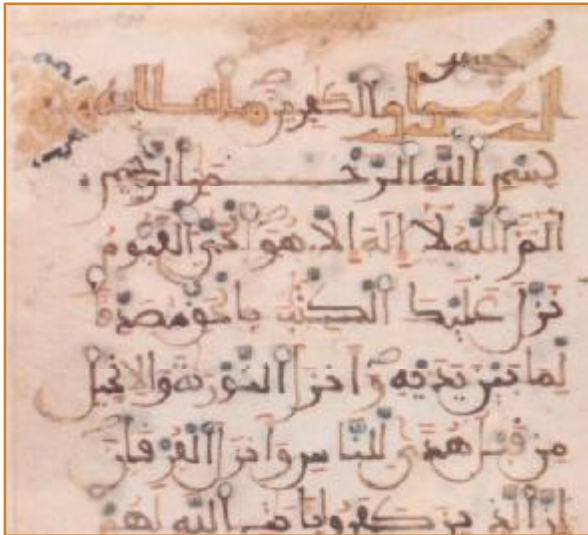 الكفرين
بسم الله الرحمن الرحيم
الم الله لا اله الا هو الحي القيوم
نزل عليك الكتب بالحق مصدقا
لما بين يديه وانزل التورية والانجيل
من قبل هدى للناس وانزل الفرقان
ان الذين كفروا بايت الله لهم